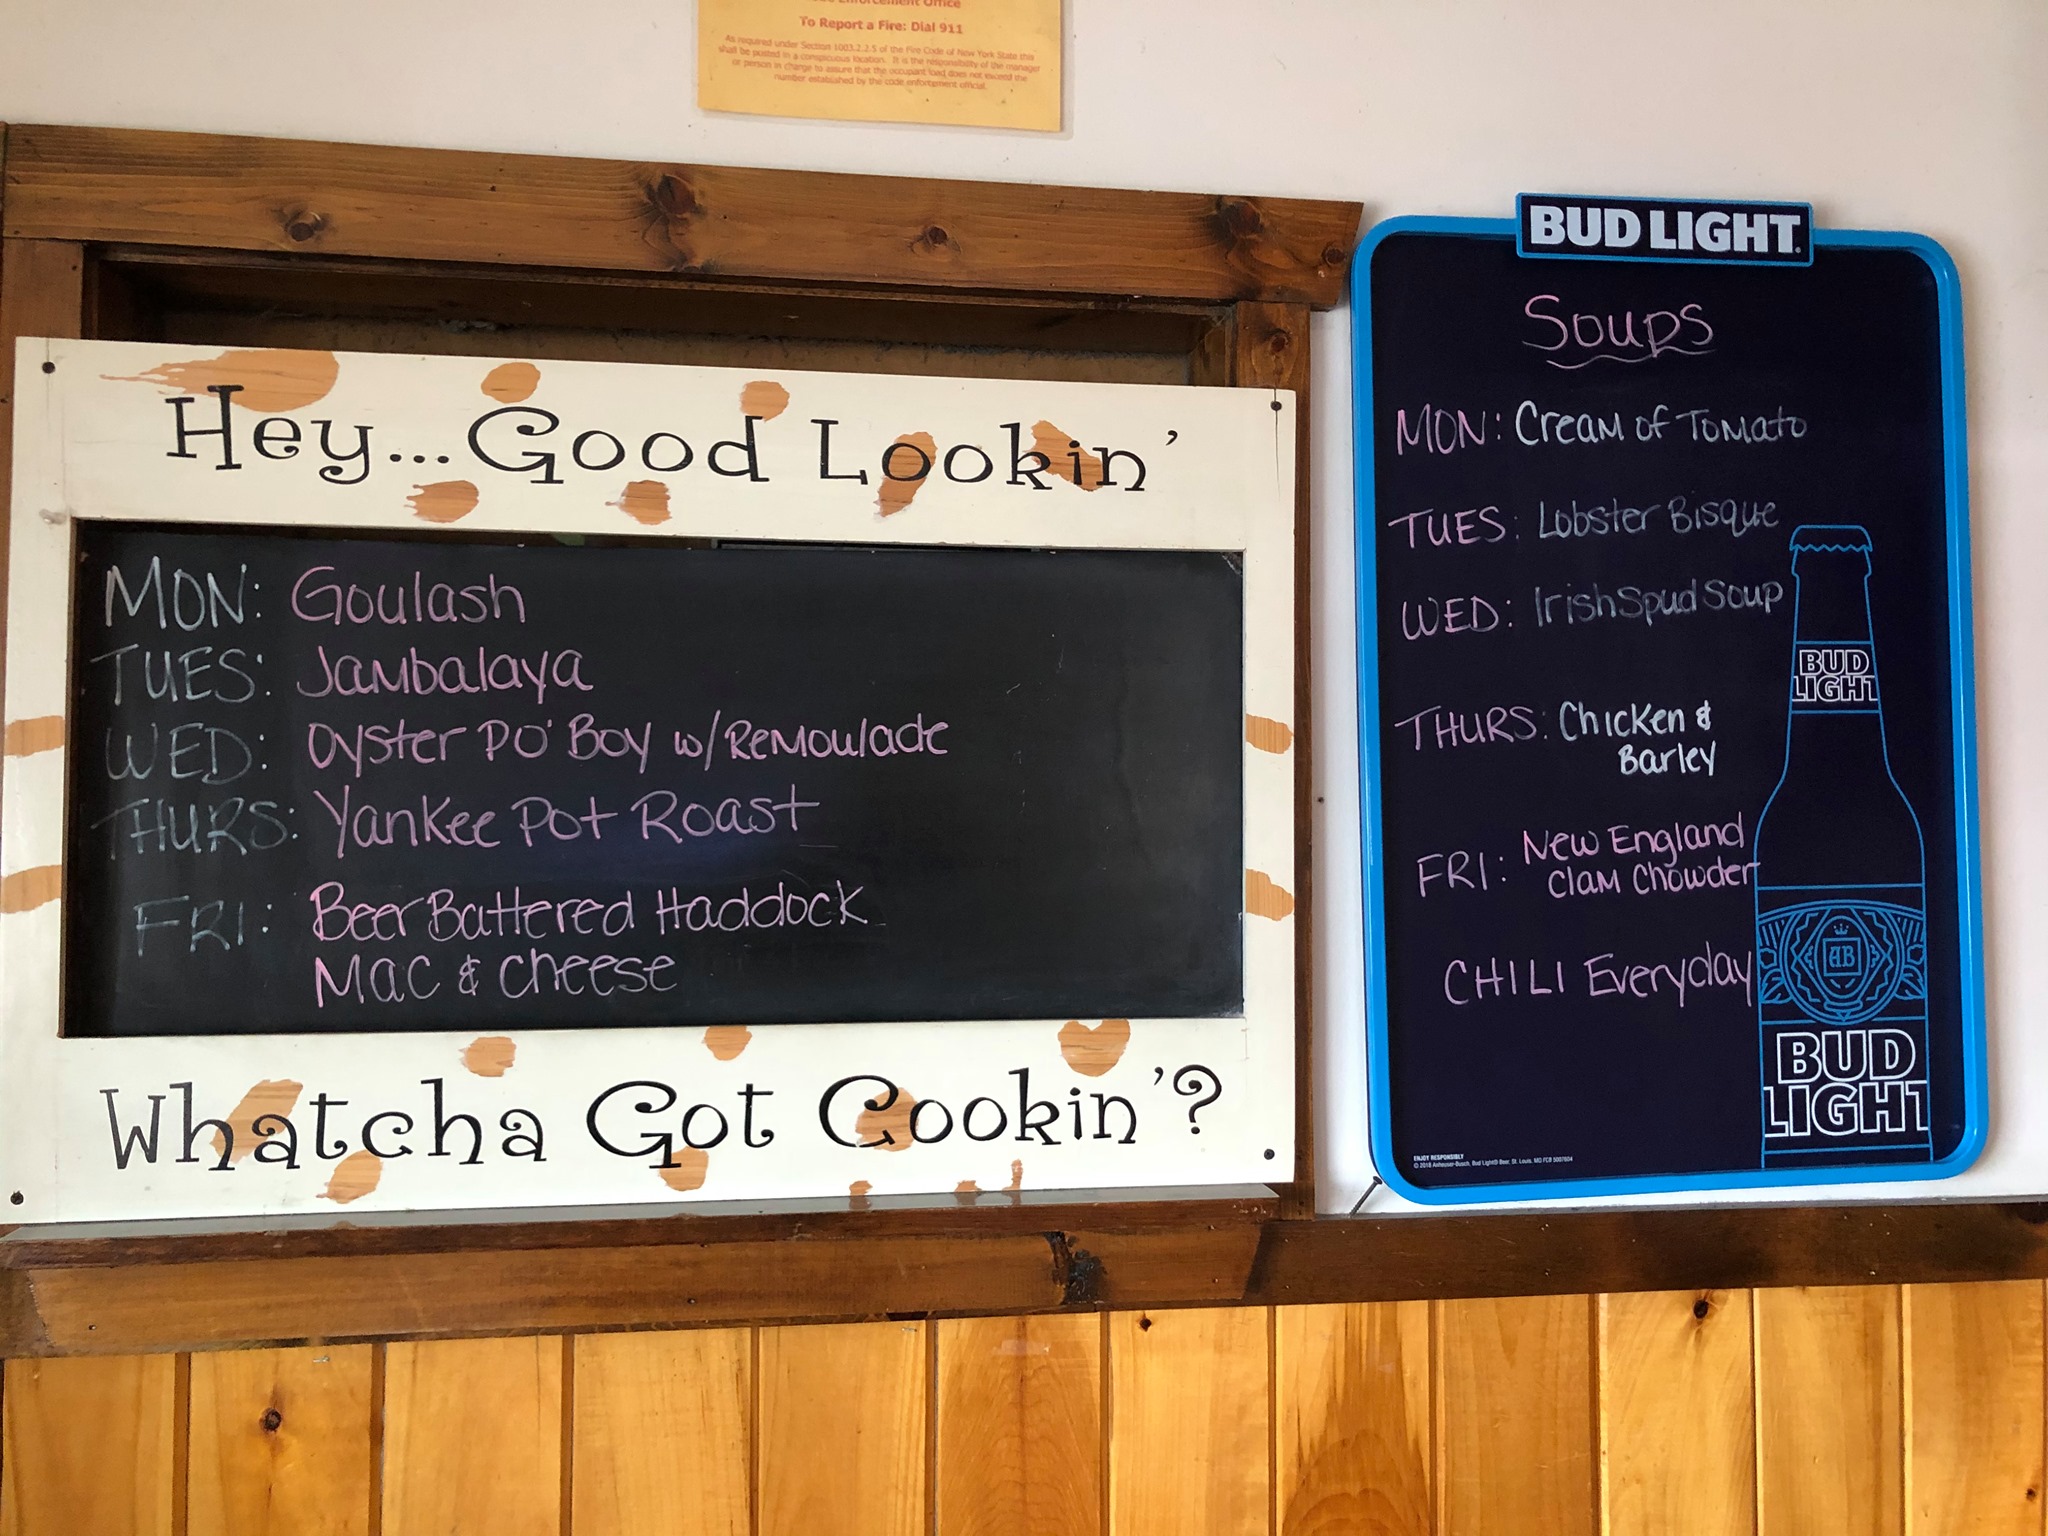 Enforcement Office
To Report a Fire: Dial 911
As required under Section 1003.2.2.5 of the Fire Code of New York State this
shall be posted in a conspicuous location. It is the responsibility of the manager
or person in charge to assure that the occupant load does not exceed the
number established by the code enforcement official.
Hey...Good Lookin'
MON: Goulash
TUES: Jambalaya
WED: Oyster Po' Boy w/ Remoulade
THURS: Yankee Pot Roast
FRI: Beer Battered Haddock
Mac & Cheese
Whatcha Got Cookin'?
BUD LIGHT
Soups
MON: Cream of Tomato
TUES: Lobster Bisque
WED: Irish Spud Soup
THURS: Chicken &
Barley
FRI: New England
Clam Chowder
CHILI Everyday
BUD
LIGHT
AB
BUD
LIGHT
ENJOY RESPONSIBLY
© 2018 Anheuser-Busch, Bud Light® Beer, St. Louis, MO